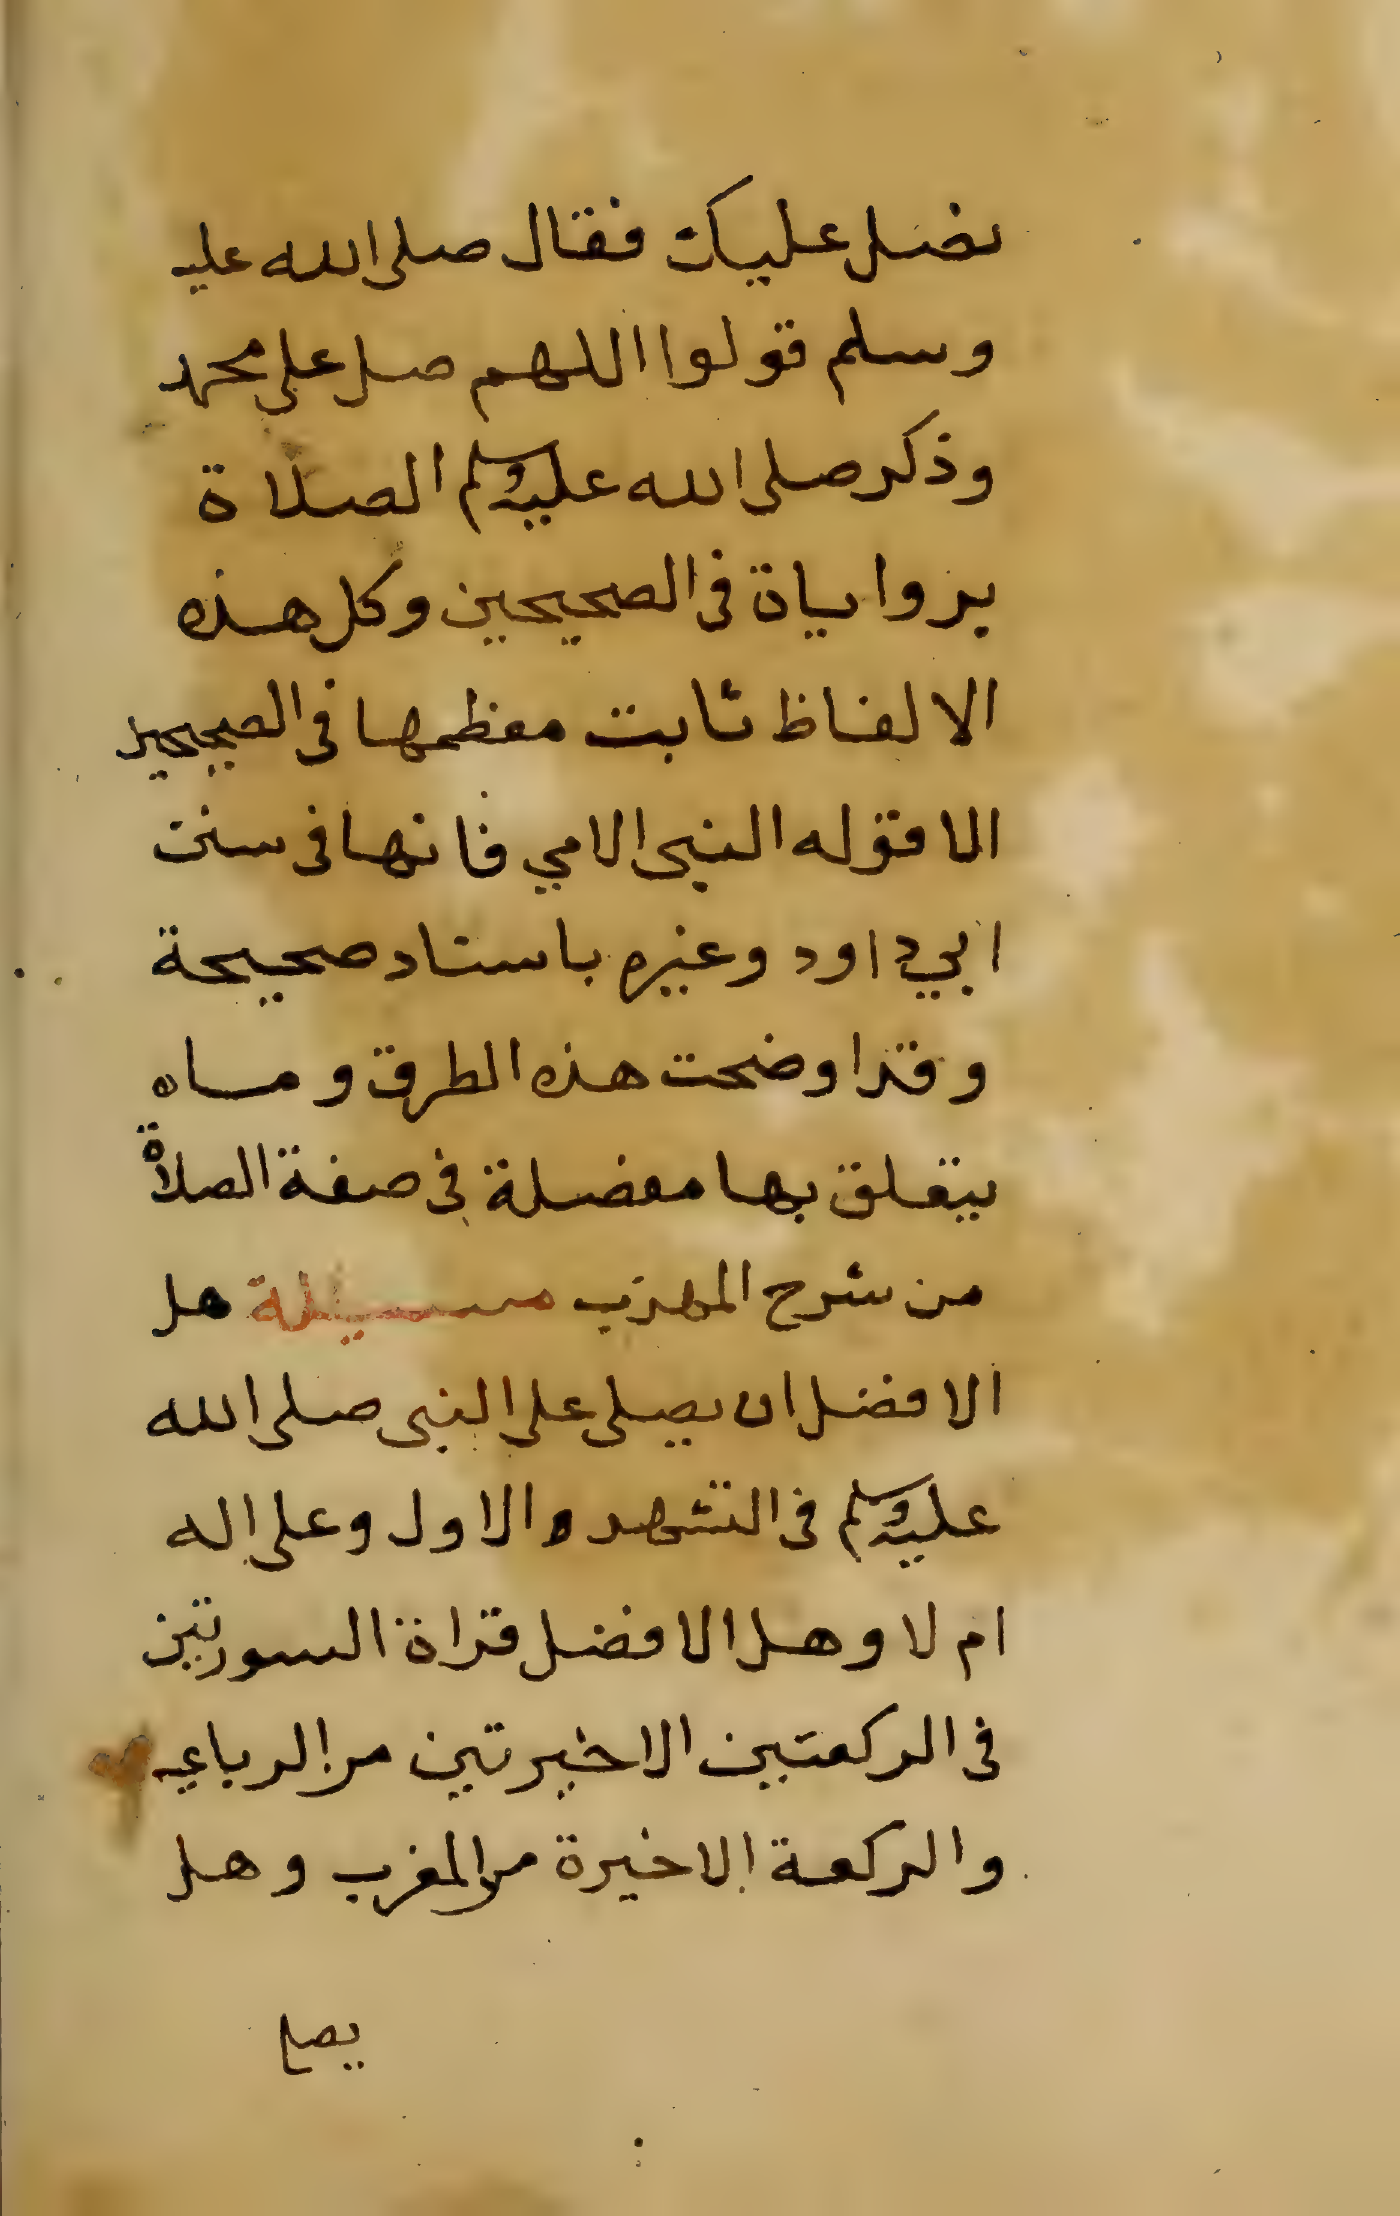 نصل عليك فقال صلى الله عليه
وسلم قولوا اللهم صل على محمد
وذكر صلى الله عليه وسلم الصلاة
بروايات في الصحيحين وكل هذه
الالفاظ ثابت معظمها في الصحيحين
الا قوله النبي الامي فانها في سنن
ابي داود وغيره باسناد صحيحة
وقد اوضحت هذه الطرق وماه
يتعلق بها مفصلة في صفة الصلاة
من شرح المهذب مسئلة هل
الافضل ان يصلى على النبي صلى الله
عليه وسلم في التشهد الاول وعلى اله
ام لا وهل الافضل قراة السورتين
في الركعتين الاخيرتين من الرباعيه
والركعة الاخيرة من المغرب وهل
يصلي